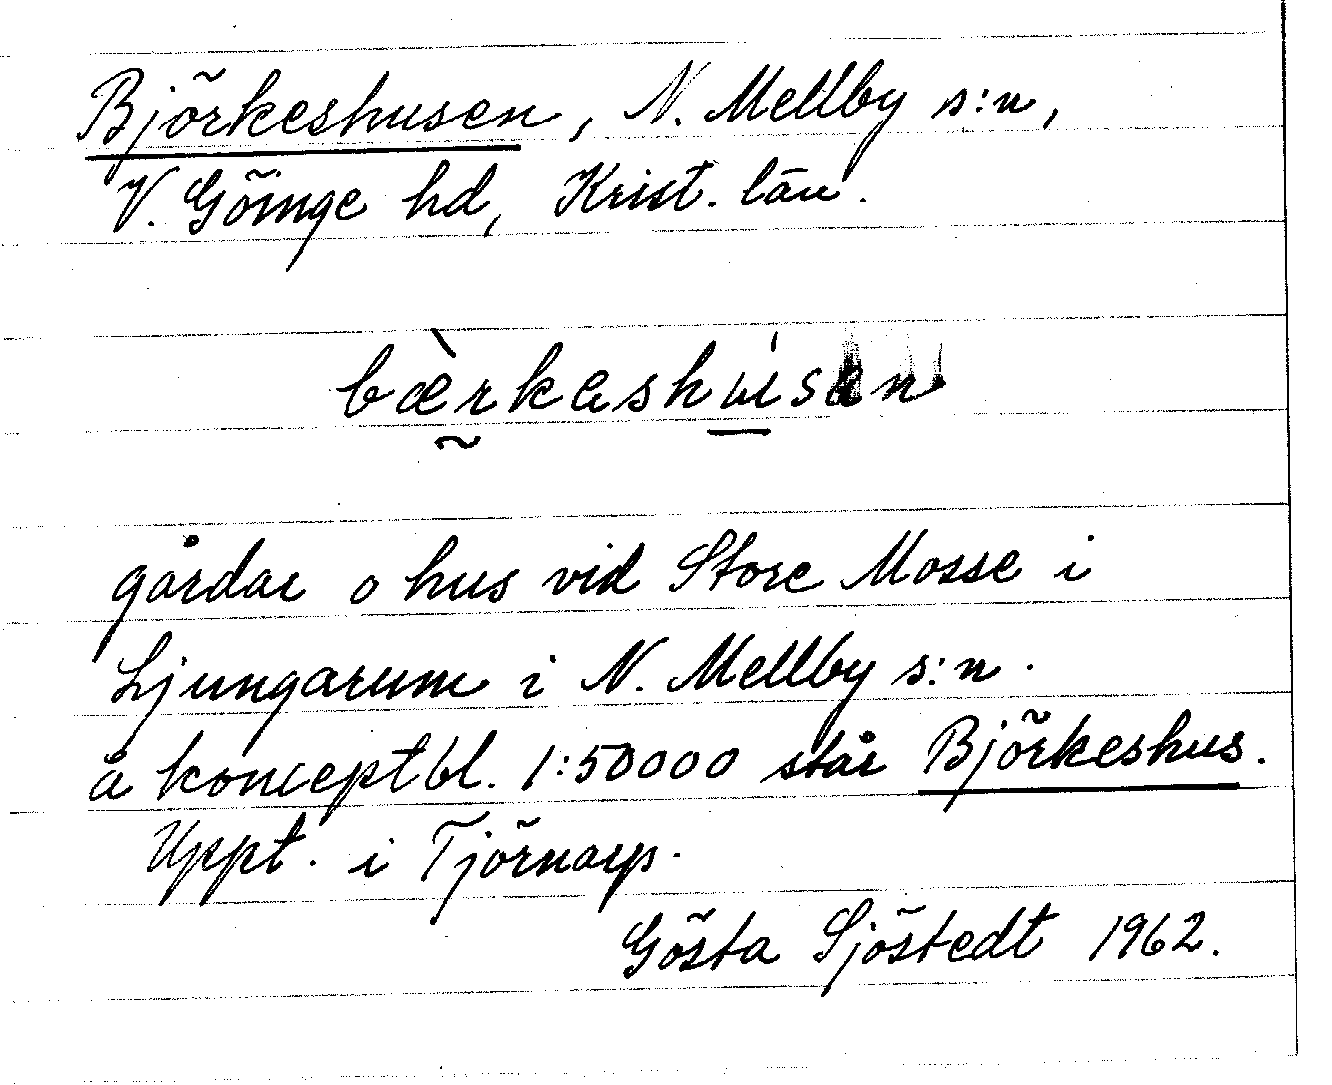 Björkeshusen, N. Mellby s:n,
V. Göinge hd, Krist. län.
bæ̀rkashúsan
gårdar o hus vid Store Mosse i
Ljungarum i N. Mellby s:n.
å konceptbl. 1:50000 står Björkeshus.
Uppt. i Tjörnarp.
Gösta Sjöstedt 1962.